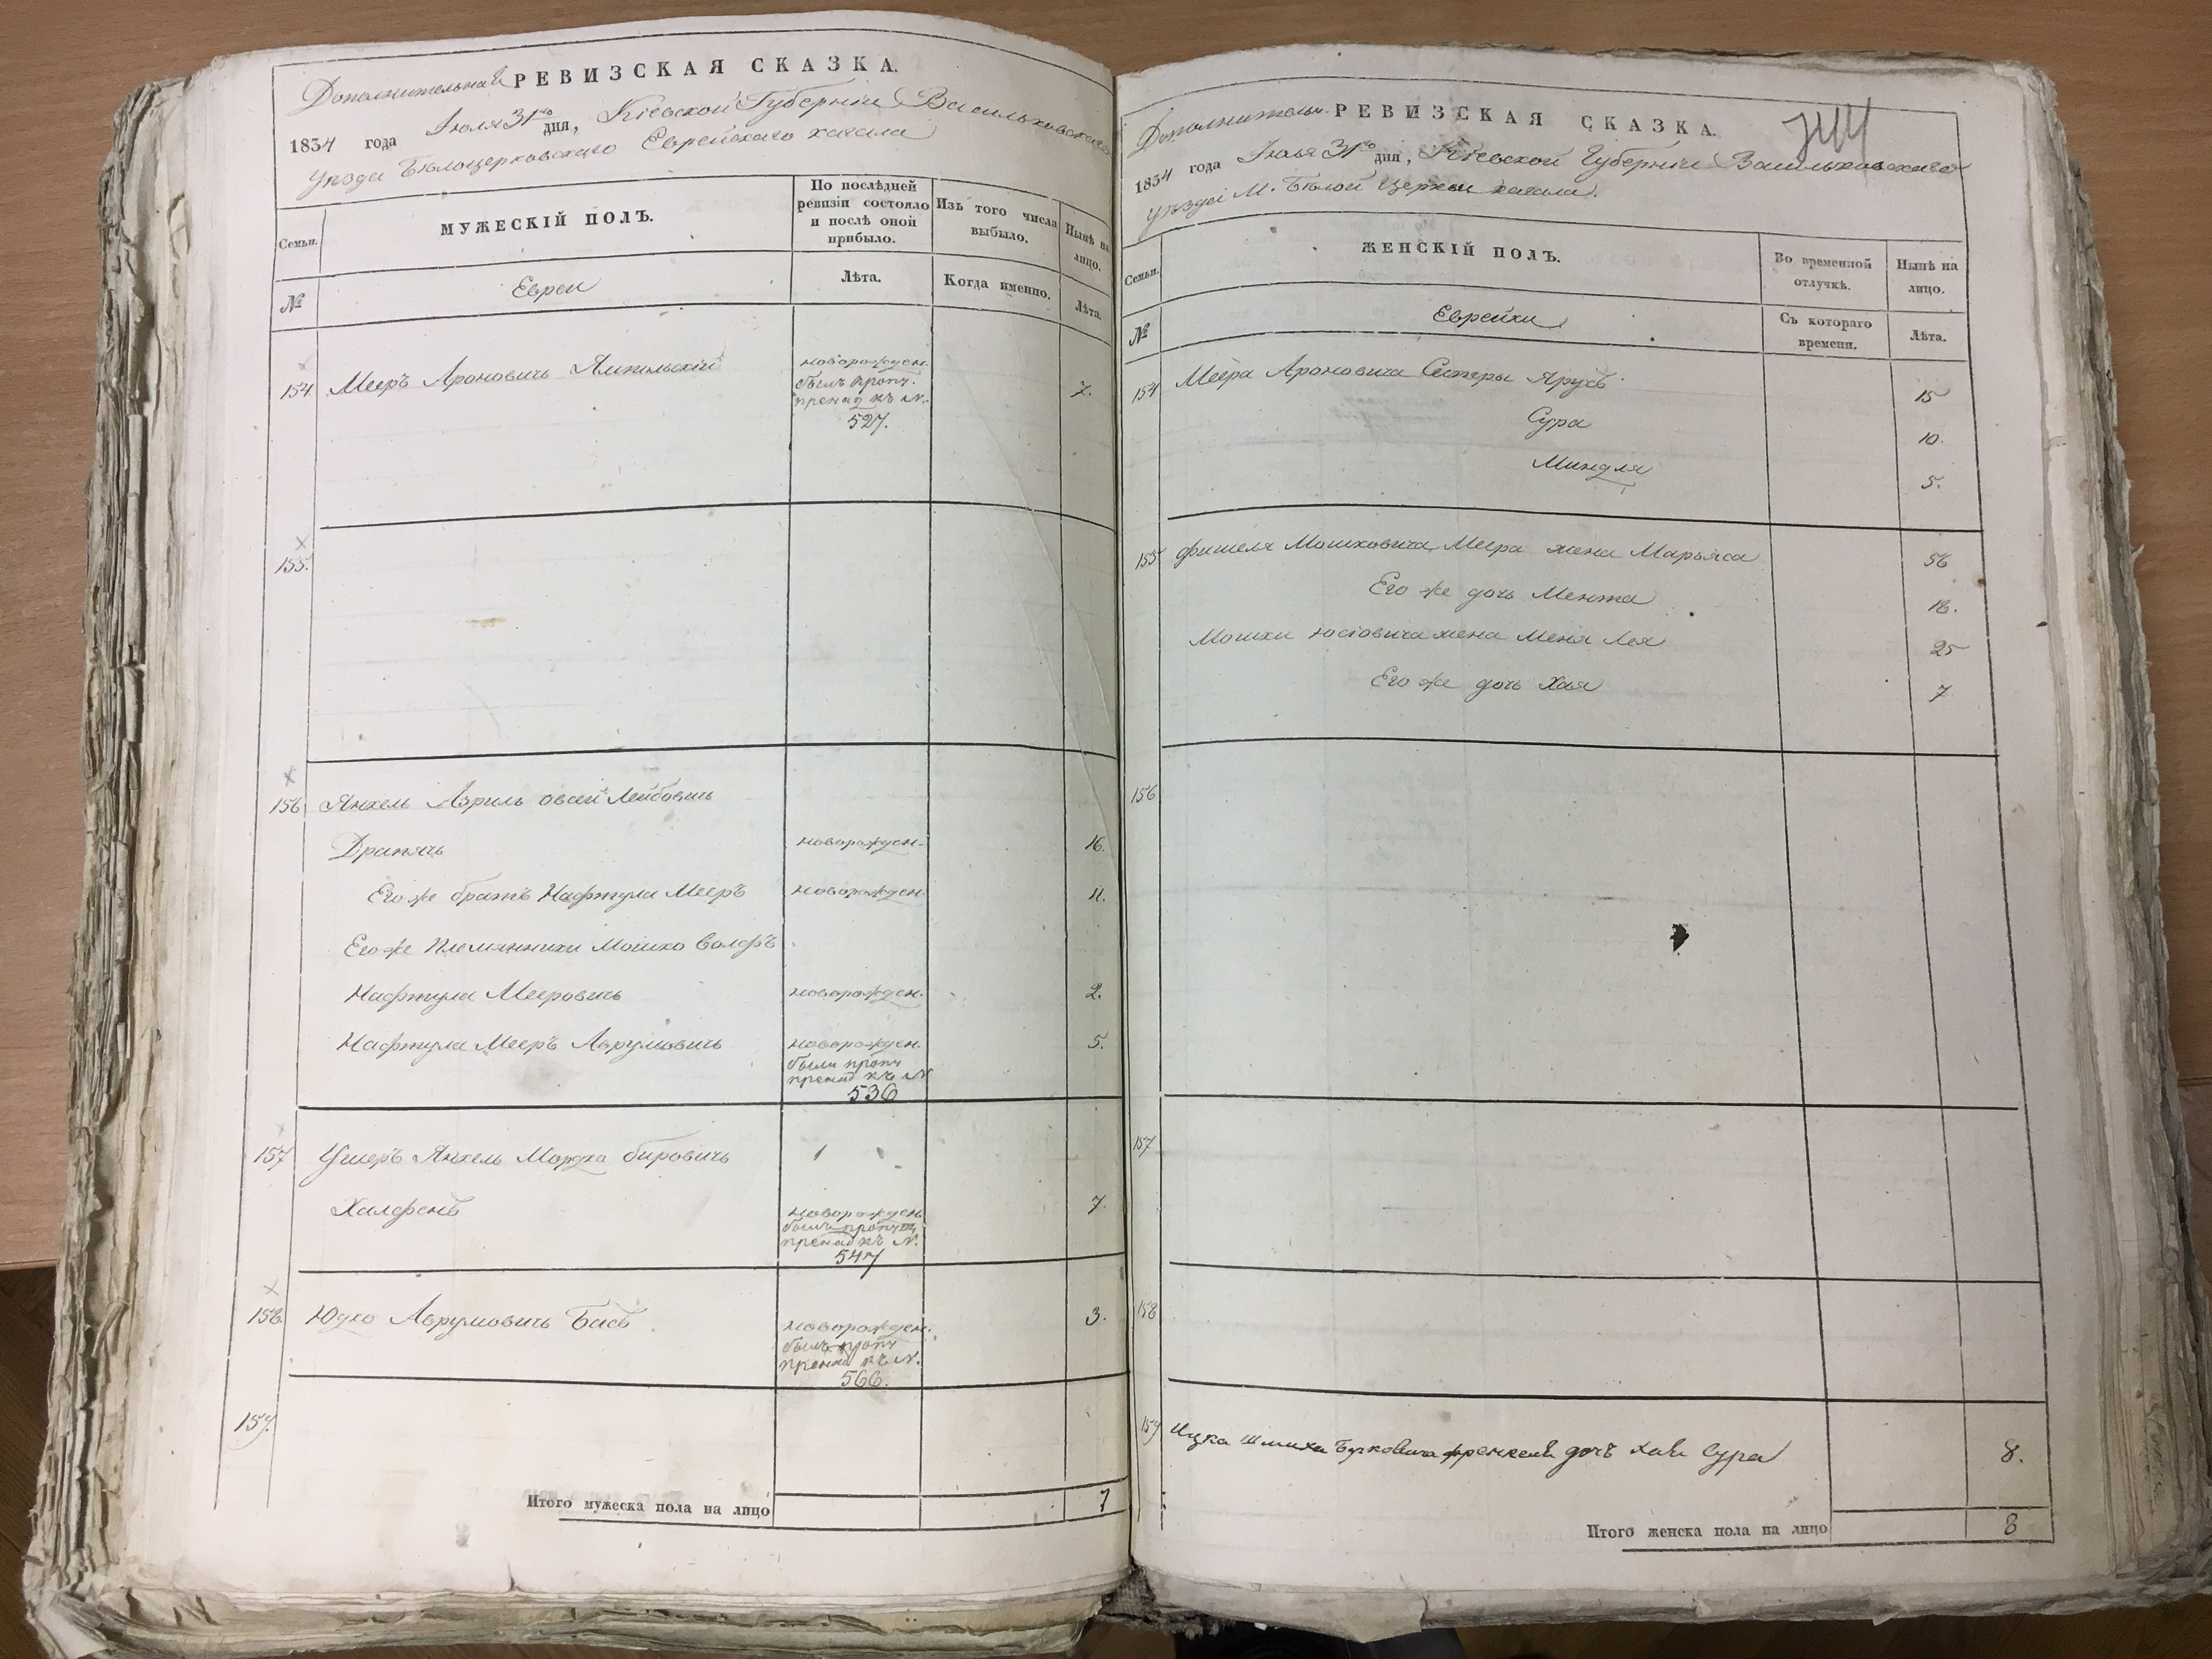 Дополнительная РЕВИЗСКАЯ СКАЗКА.
1834 года Июля 31го дня, Кіевской Губерніи Васильковскаго
уезда Белоцерковскаго Еврейскаго кагала
Семьи.
МУЖЕСКІЙ ПОЛЪ.
По послѣдней ревизіи состояло и послѣ оной прибыло.
Изъ того числа выбыло.
Нынѣ на лицо.
№
Евреи
Лѣта.
Когда именно.
Лѣта.
154. Мееръ Ароновичь Ямпольскій новорожден. 7.
былъ проп.
пренад къ N.
527.
155.
156. Янкель Азриль Овсей Лейбовичь
Драпачь новорожден. 16.
Его же братъ Нафтула Мееръ новорожден. 11.
Его же Племянники Мошко Волфъ
Нафтула Мееровичь новорожден. 2.
Нафтула Мееръ Аврумовичь новорожден. 5.
были проп
пренад къ N
536
157 Ушеръ Янкель Мордха Бировичь
Халфенъ новорожден 7.
былъ проп
пренад къ N.
547
158. Юдко Аврумовичь Басъ новорожден. 3.
былъ проп
пренад къ N.
566.
159.
Итого мужеска пола на лицо 7
Дополнительн. РЕВИЗСКАЯ СКАЗКА.
744
1834 года Июля 31го дня, Кіевской Губерніи Васильковскаго
уезда М. Белой Церкви кагала.
Семьи.
ЖЕНСКІЙ ПОЛЪ.
Во временной отлучкѣ.
Нынѣ на лицо.
№
Еврейки
Съ котораго времени.
Лѣта.
154 Меера Ароновича Сестры Ярухъ 15
Сура 10.
Миндля 5.
155 Фишеля Мошковича Меера жена Марьяса 56
Его же дочь Мента 18.
Мошки Юсіовича жена Меня Лея 25
Его же дочь Хая 7
156
157
158
159 Ицка Шлиома Берковича Френкеля дочь Хава Сура 8.
Итого женска пола на лицо 8